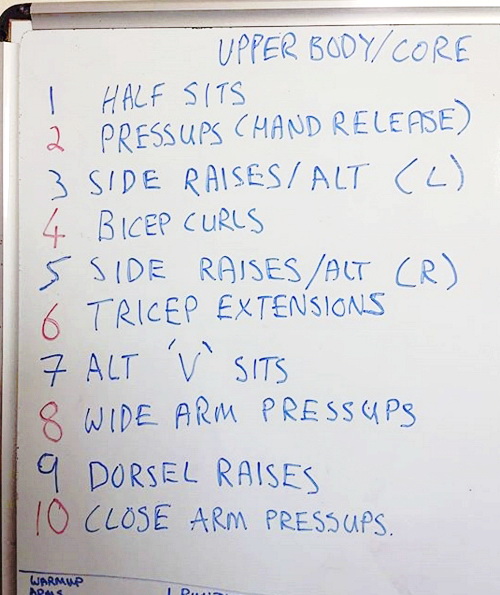 UPPER BODY/CORE
1 HALF SITS
2 PRESSUPS (HAND RELEASE)
3 SIDE RAISES/ALT (L)
4 BICEP CURLS
5 SIDE RAISES/ALT (R)
6 TRICEP EXTENSIONS
7 ALT 'V' SITS
8 WIDE ARM PRESSUPS
9 DORSEL RAISES
10 CLOSE ARM PRESSUPS.
WARMUP
ARMS